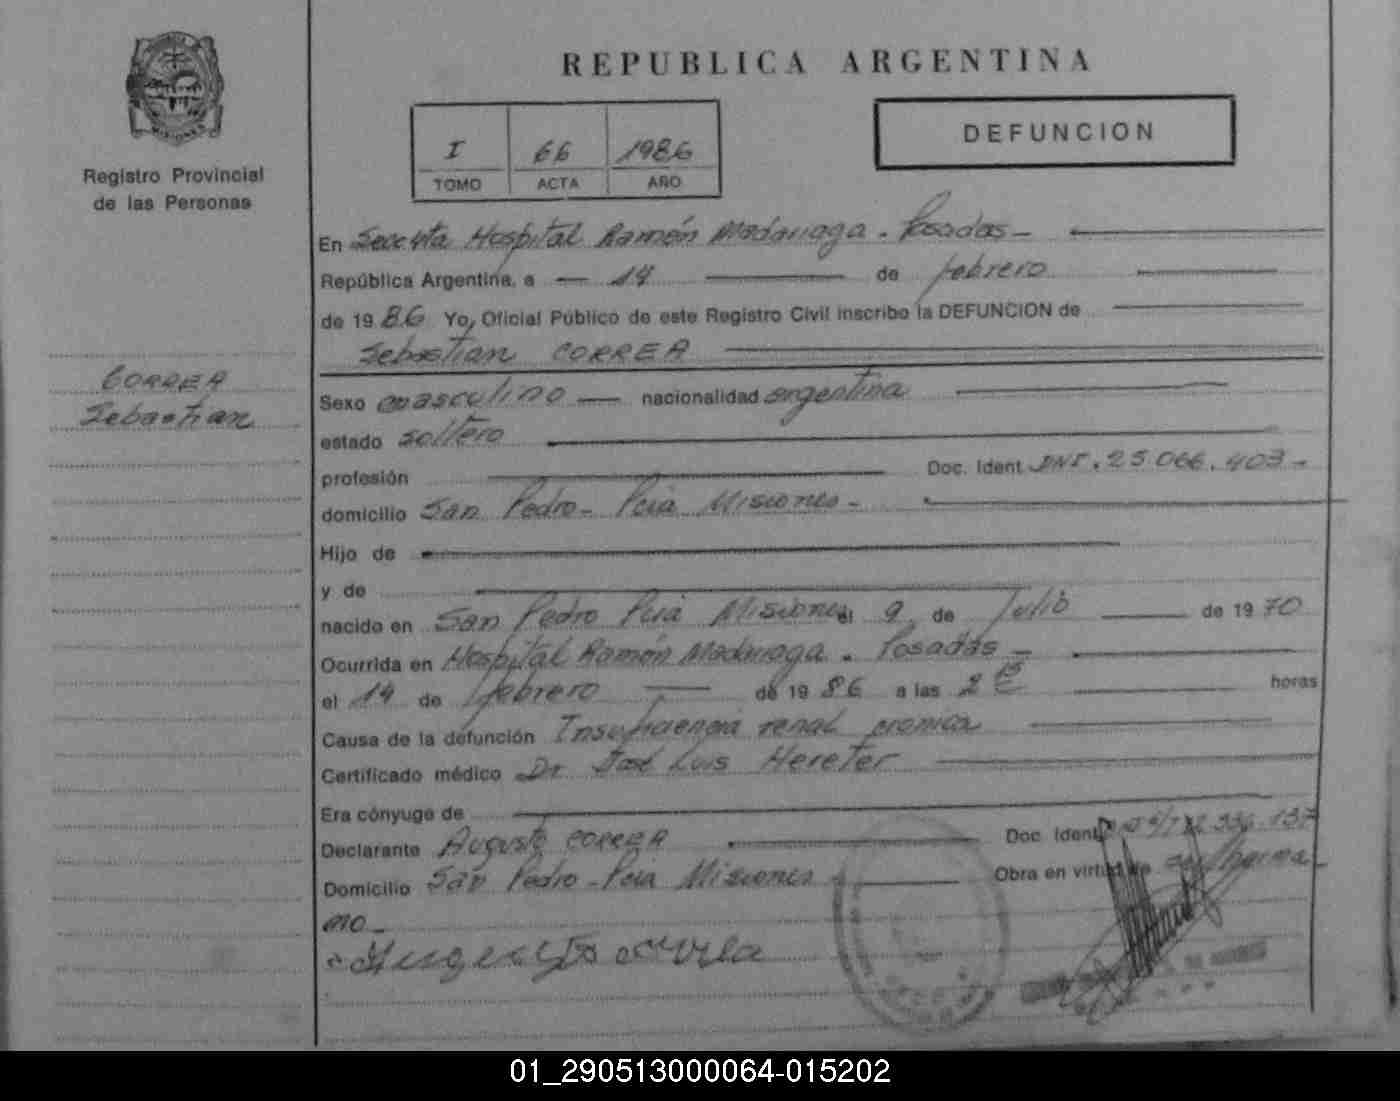 MISIONES
Registro Provincial
de las Personas
CORREA
Sebastian
REPUBLICA ARGENTINA
I 66 1986
TOMO ACTA AÑO
DEFUNCION
En Seccita Hospital Ramón Madariaga - Posadas -
República Argentina, a 14 de febrero
de 1986 Yo, Oficial Público de este Registro Civil inscribo la DEFUNCION de
Sebastian CORREA
Sexo masculino nacionalidad argentina
estado soltero
profesión Doc. Ident. DNI. 25.066.403 -
domicilio San Pedro - Pcia Misiones -
Hijo de
y de
nacido en San Pedro Pcia Misiones el 9 de Julio de 1970
Ocurrida en Hospital Ramón Madariaga - Posadas -
el 14 de febrero de 1986 a las 2 horas
Causa de la defunción Insuficiencia renal cronica
Certificado médico Dr José Luis Hereter
Era cónyuge de
Declarante Augusto CORREA Doc. Ident.
Domicilio San Pedro - Pcia Misiones Obra en virtud de
mo -
01_290513000064-015202